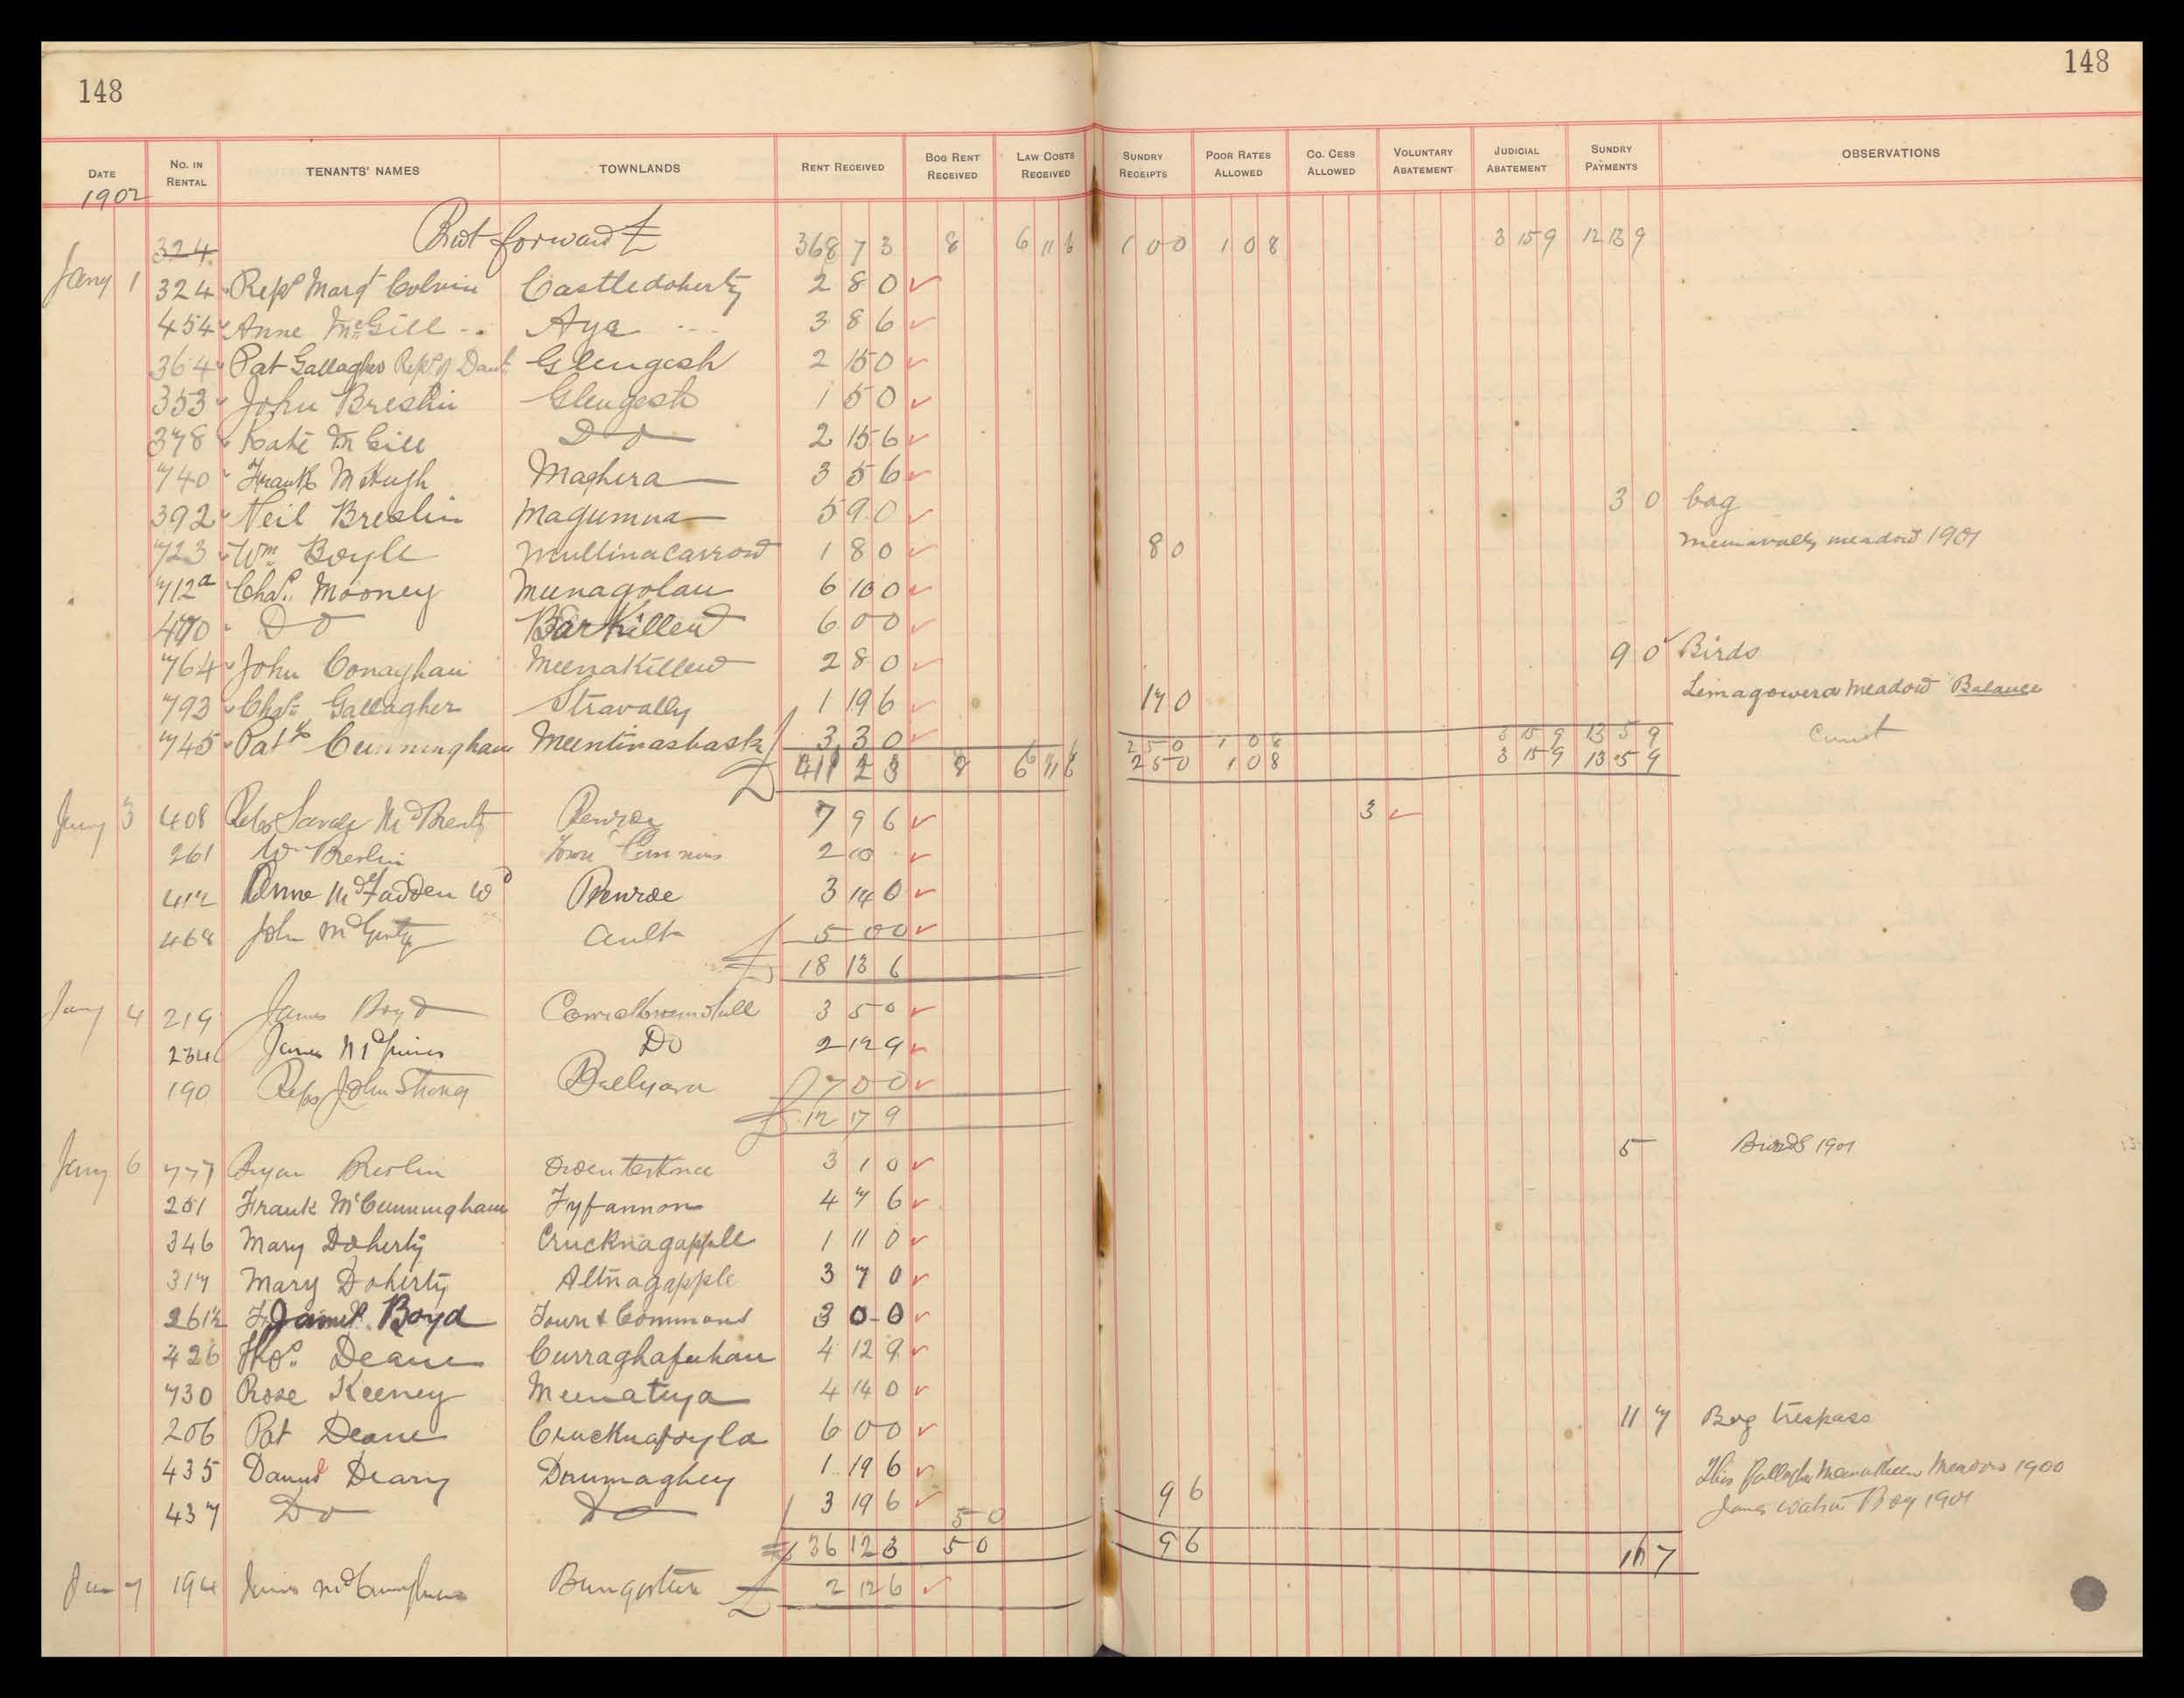 148
148
DATE No. IN RENTAL TENANTS' NAMES TOWNLANDS RENT RECEIVED BOG RENT RECEIVED LAW COSTS RECEIVED SUNDRY RECEIPTS POOR RATES ALLOWED CO. CESS ALLOWED VOLUNTARY ABATEMENT JUDICIAL ABATEMENT SUNDRY PAYMENTS OBSERVATIONS
1902
324 Brot forward £ 368 7 3 8 6 11 6 1 0 0 1 0 8 3 15 9 12 13 9
Jany 1 324 Reps Margt Colvin Castledoherty 2 8 0
454 Anne McGill Aya 3 8 6
364 Pat Gallagher Reps of Danl Glengesh 2 15 0
353 John Breslin Glengesh 1 5 0
378 Kate McGill Do 2 15 6
740 Frank McHugh Maghera 3 5 6
392 Neil Breslin Magumna 5 9 0 3 0 bog
723 Wm Boyle Mullinacarrow 1 8 0 8 0 meadow 1901
712a Chas. Mooney Meenagolan 6 10 0
470 Do Barkillew 6 0 0
764 John Conaghan Meenakillew 2 8 0 9 0 Birds
793 Chas Gallagher Stravally 1 19 6 17 0 Limagowera meadow Balance
745 Patk Cunningham Meentinashask 3 3 0 2 5 0 1 0 8 3 15 9 13 5 9
£ 411 2 3 8 6 11 6 2 5 0 1 0 8 3 15 9 13 5 9
Jany 3 408 Reps McBrearty Penroe 7 9 6 3
261 Wm Breslin Town Commons 2 10
412 Anne McFadden Wd Penroe 3 14 0
468 John McGinty Ault 5 0 0
£ 18 13 6
Jany 4 219 James Boyd 3 5 0
234 James Do 2 12 9
190 Reps John Strong Ballyara 7 0 0
£ 12 17 9
Jany 6 777 Bryan Breslin 3 1 0 5 Birds 1901
251 Frank McCunningham Fyfannon 4 7 6
346 Mary Doherty Crucknagapple 1 11 0
317 Mary Doherty Altnagapple 3 7 0
261½ James Boyd Town & Commons 3 0 0
426 Thos. Deane Curraghafeehan 4 12 9
730 Rose Keeney Meenatuya 4 14 0
206 Pat Deane Crucknafoyla 6 0 0 11 7 Bog trespass
435 Daniel Deany Drumaghey 1 19 6 Gallagher Meadow 1900
437 Do Do 3 19 6 5 0 9 6 James Bog 1901
£ 36 12 3 5 0 9 6 16 7
Jan 7 194 James McCunningham Bungosteen £ 2 12 6